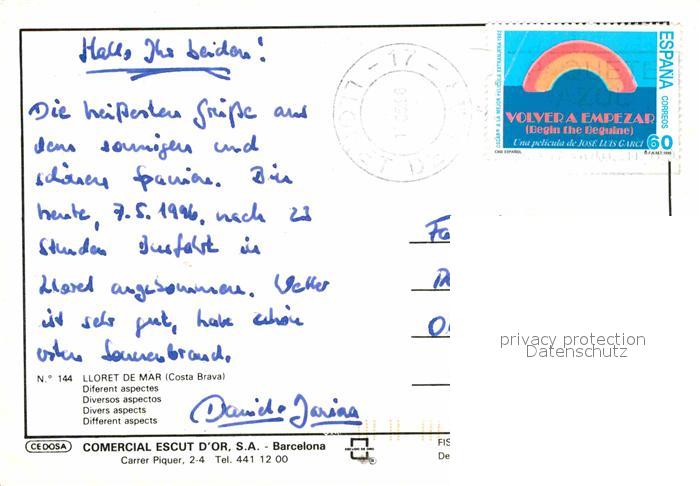 Hallo Ihr beiden!
Die heißesten Grüße aus
dem sonnigen und
schönen Spanien. Bin
heute, 7.5.1996, nach 23
Stunden Busfahrt in
Lloret angekommen. Wetter
ist sehr gut, habe schon
ersten Sonnenbrand.
N.° 144 LLORET DE MAR (Costa Brava)
Diferent aspectes
Diversos aspectos
Divers aspects
Different aspects
CEDOSA
COMERCIAL ESCUT D'OR, S.A. - Barcelona
Carrer Piquer, 2-4 Tel. 441 12 00
17
ESPAÑA
CORREOS
VOLVER A EMPEZAR
(Begin the Beguine)
Una película de JOSÉ LUIS GARCI
60
CINE ESPAÑOL
privacy protection
Datenschutz
FIS
De